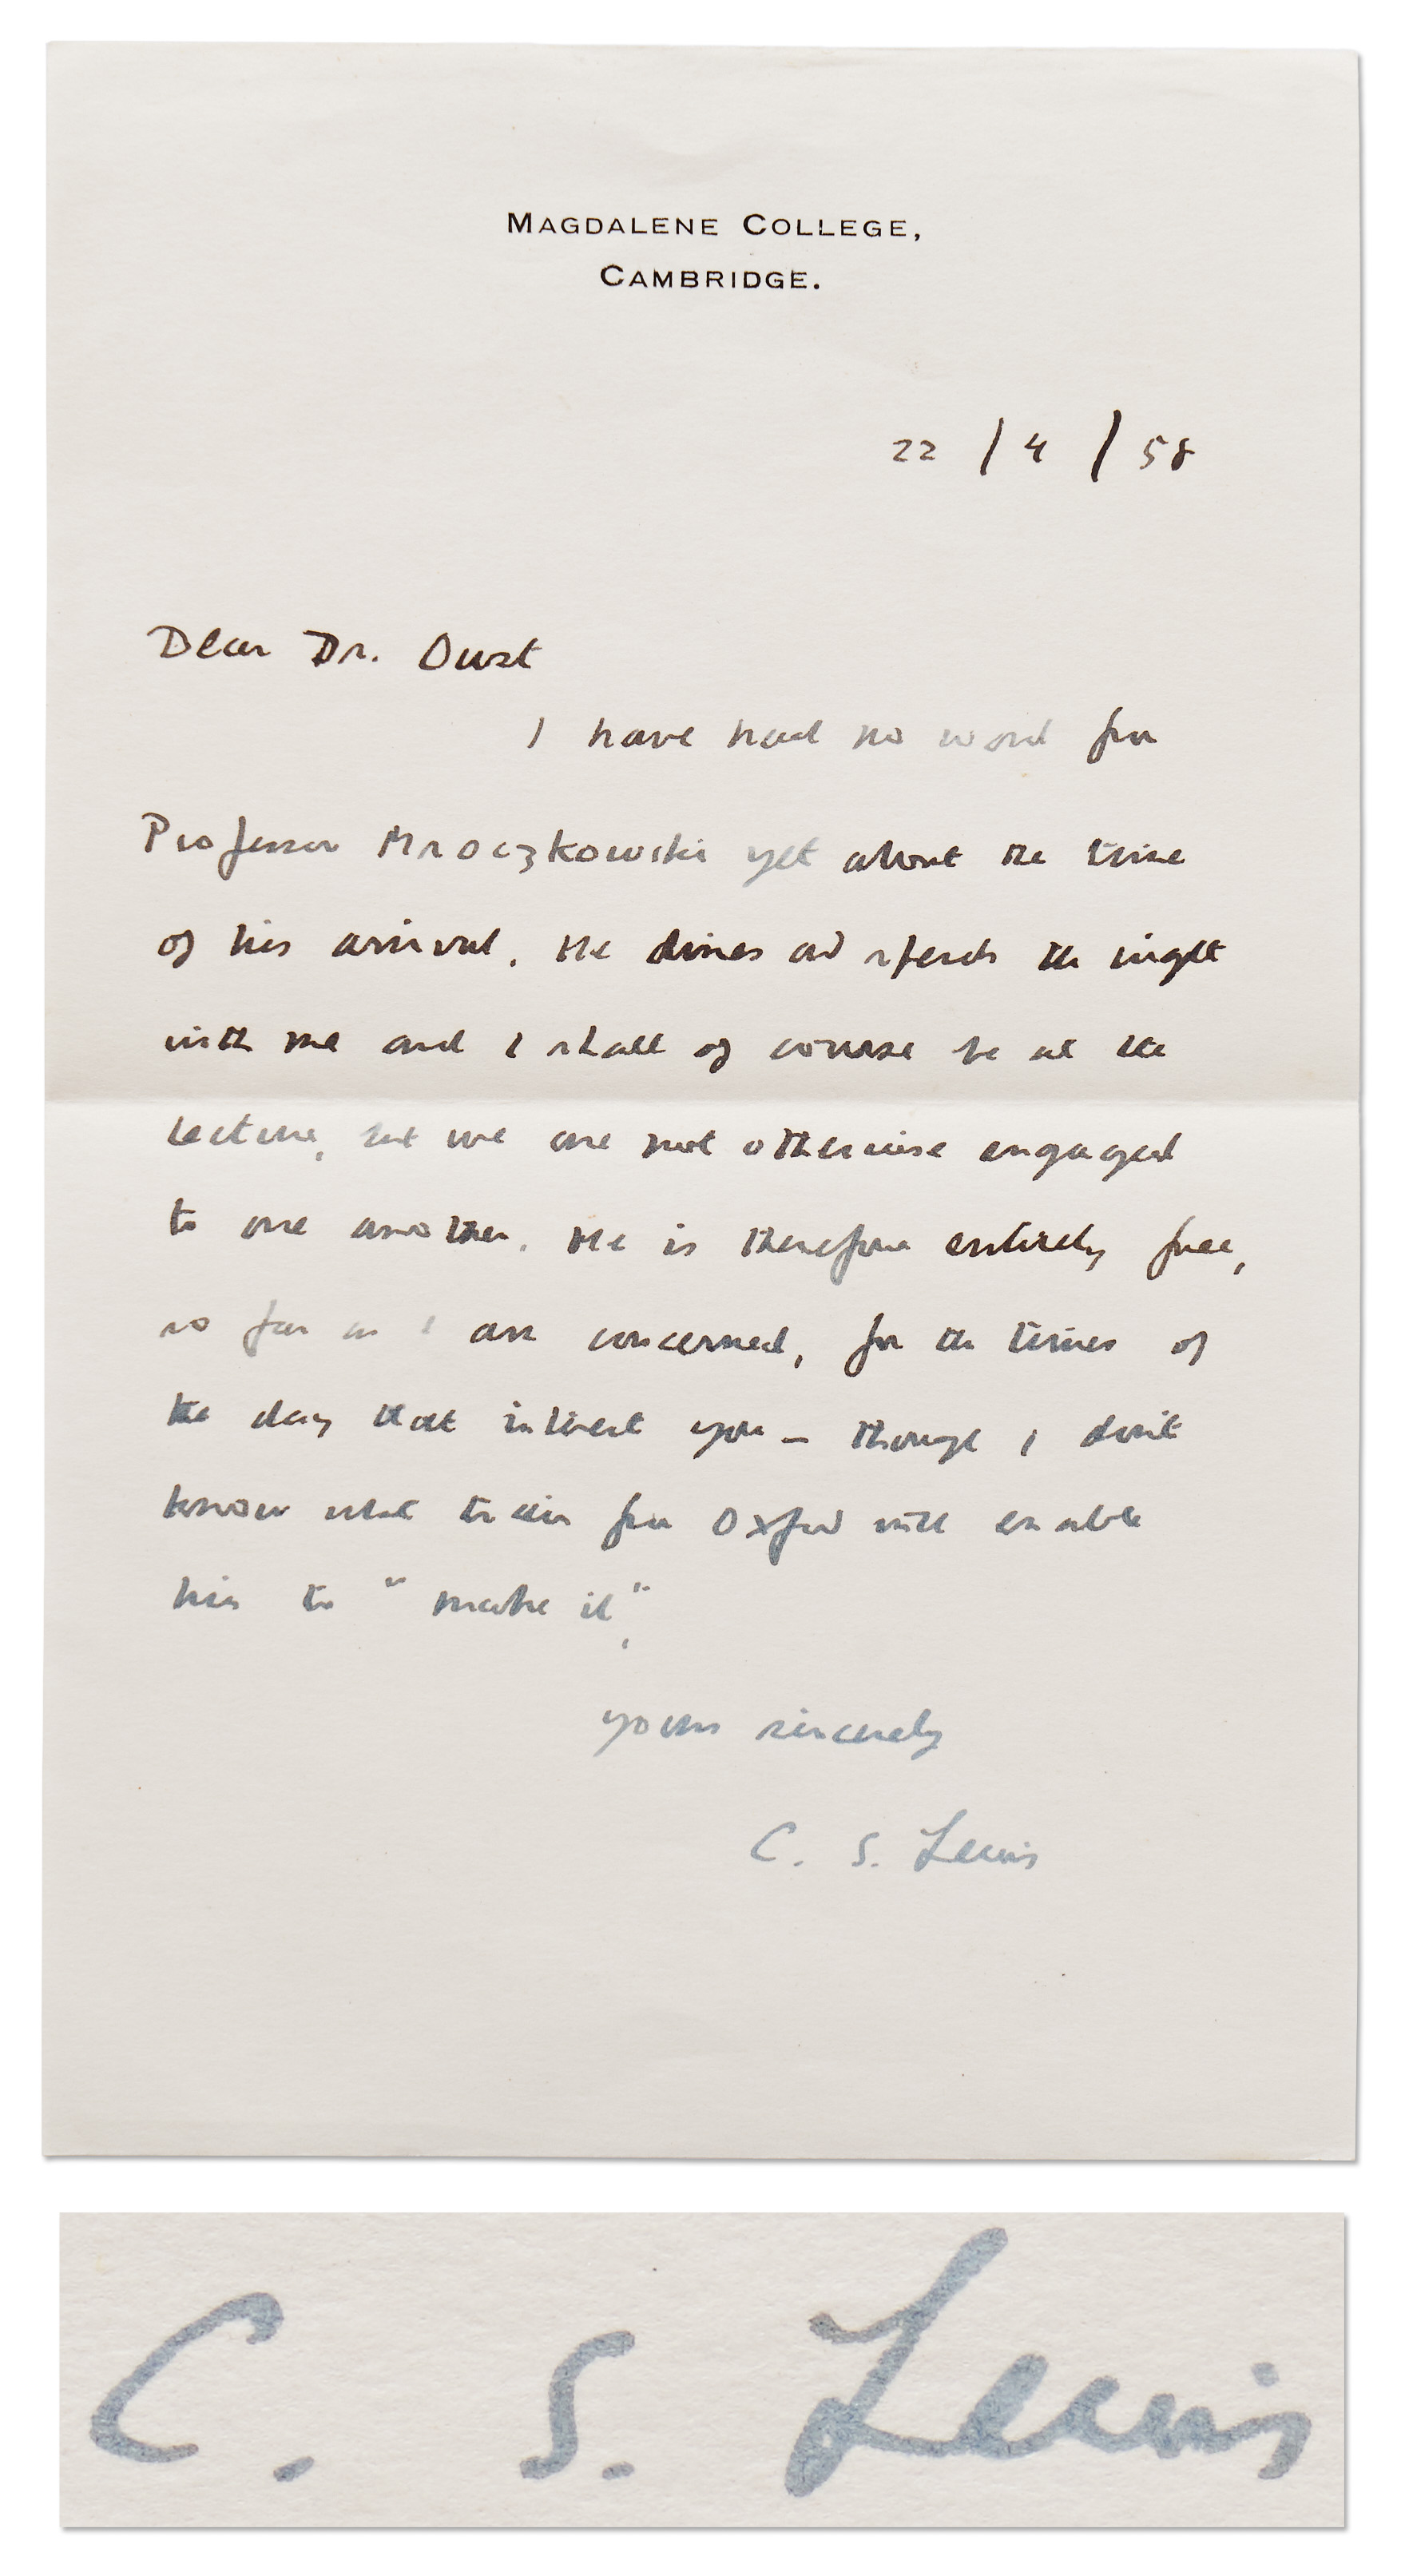 MAGDALENE COLLEGE,
CAMBRIDGE.
22 / 4 / 58
Dear Dr. Oust
I have had no word from
Professor Mroczkowski yet about the time
of his arrival. He dines and spends the night
with me and I shall of course be at the
lecture, but we are not otherwise engaged
to one another. He is therefore entirely free,
so far as I am concerned, for the times of
the day that interest you – though I don't
know what train from Oxford will enable
him to "make it".
yours sincerely
C. S. Lewis
C. S. Lewis